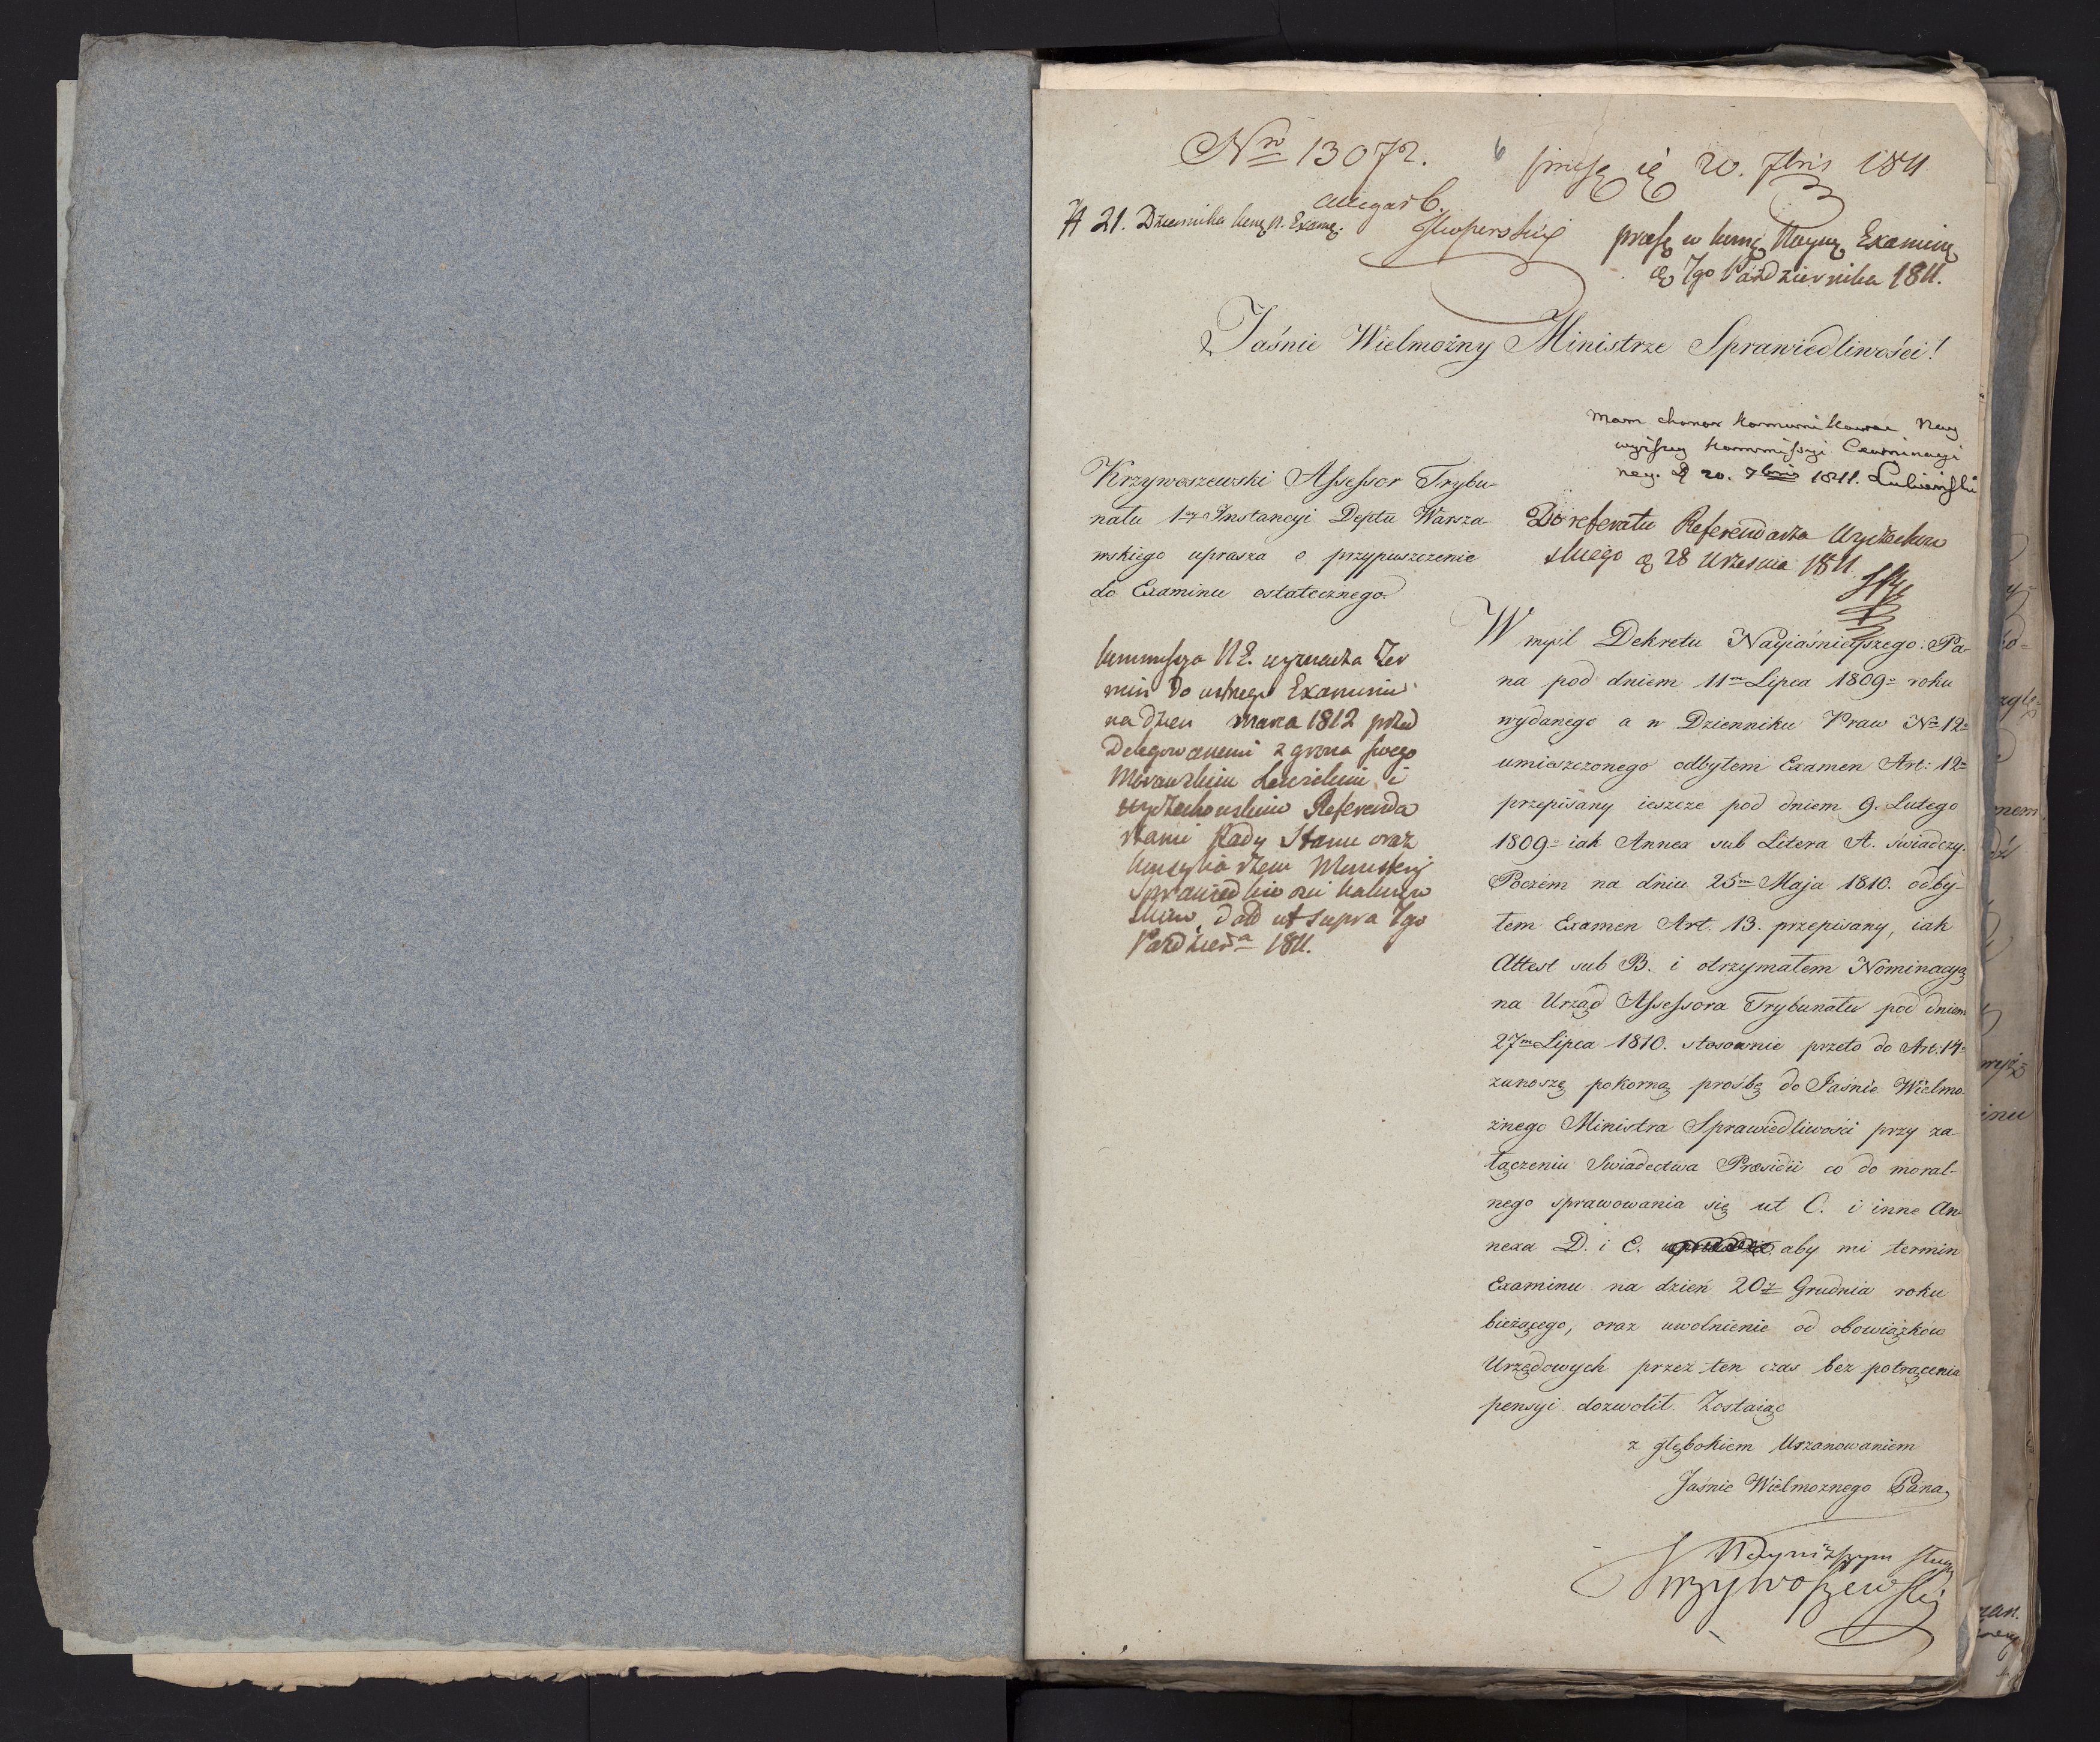 Nro 13072.
20. 7bris 1811
allegat 6.
21. Dziennika Exam.
w Examin
7go Października 1811.
Jaśnie Wielmożny Ministrze Sprawiedliwości!
Mam chonor komunikować Nay
wyższey Kommissyi Examinacyi
ney. d 20. 7bris 1811. Łubieński
Krzywoszewski Assessor Trybu-
nału 1ey Instancyi Deptu Warsza-
wskiego uprasza o przypuszczenie
do Examinu ostatecznego.
Do referatu Referendarza Wyczechow
skiego d 28 Września 1811.
Kommissya N E. wyznacza Ter
min do ustnego Examinu
na dzień marca 1812 przed
Delegowanemi z grona swego
Morawskim i
Wyczechowskim Referenda
rzami Rady Stanu oraz
Ministeryi
Sprawiedliwości
datt ut supra 7go
Paździera 1811.
W myśl Dekretu Nayiaśnieyszego Pa-
na pod dniem 11m Lipca 1809o roku
wydanego a w Dzienniku Praw No 12o
umieszczonego odbyłem Examen Art: 12o
przepisany ieszcze pod dniem 9. Lutego
1809o iak Annex sub Litera A. świadczy.
Poczem na dniu 25m Maja 1810. odby-
łem Examen Art. 13. przepisany, iak
Attest sub B. i otrzymałem Nominacyą
na Urząd Assessora Trybunału pod dniem
27m Lipca 1810. stosownie przeto do Art: 14o
zanoszę pokorną prośbę do Jaśnie Wielmo-
żnego Ministra Sprawiedliwości przy za-
łączeniu Swiadectwa Præsidii co do moral-
nego sprawowania się ut C. i inne An-
nexa D. i E. aby mi termin
Examinu na dzień 20o Grudnia roku
bieżącego, oraz uwolnienie od obowiązków
Urzędowych przez ten czas bez potrącenia
pensyi dozwolił. Zostaiąc
z głębokiem Uszanowaniem
Jaśnie Wielmożnego Pana
Nayniższym sługą
Krzywoszewski